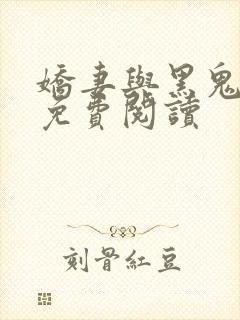 嬌妻與黑鬼
免費閱讀
刻骨紅豆